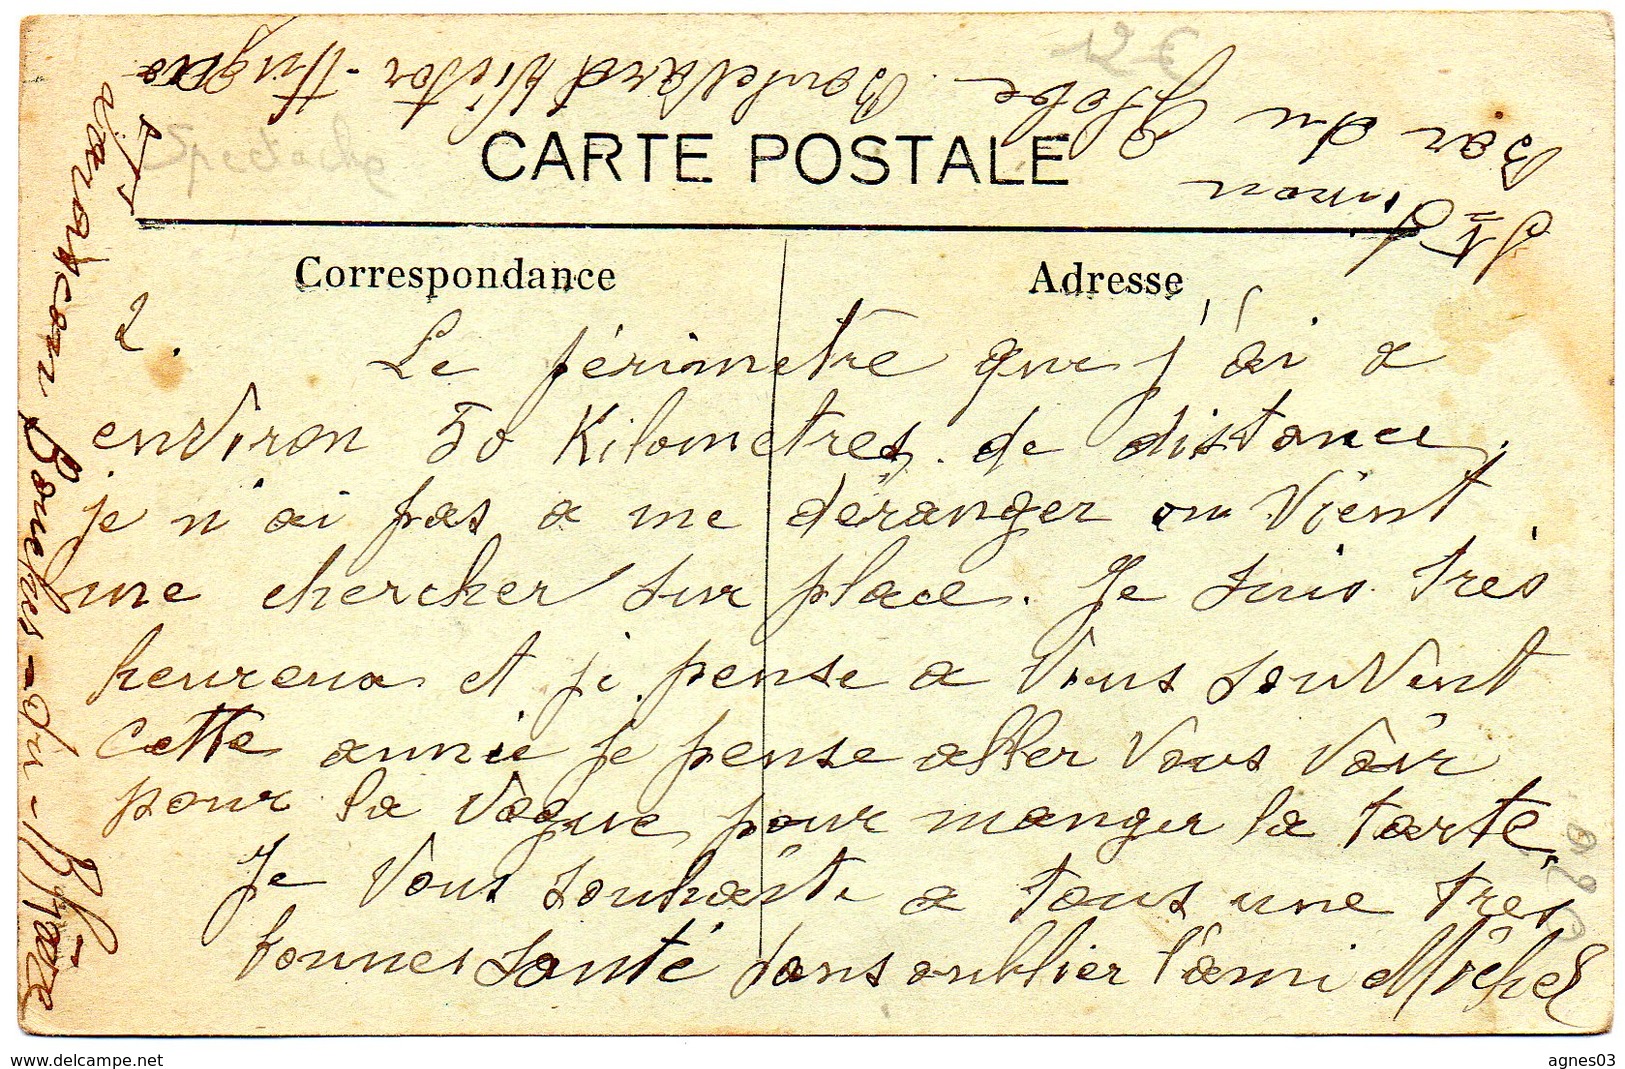 12 €
Spectacle
CARTE POSTALE
Correspondance
Adresse
2.
Le périmetre que j'ai a
environ 50 Kilometres de distance.
je n'ai pas a me déranger on vient
me chercher sur place. Je suis très
heureux et je pense a vous souvent
cette année je pense aller vous voir
pour la vogue pour manger la tarte
Je vous souhaite a tous une très
bonne santé sans oublier l'ami Michel
Simon
Bar du Globe Boulevard Victor-Hugo
a Tarascon Bouches-du-Rhône
www.delcampe.net
agnes03